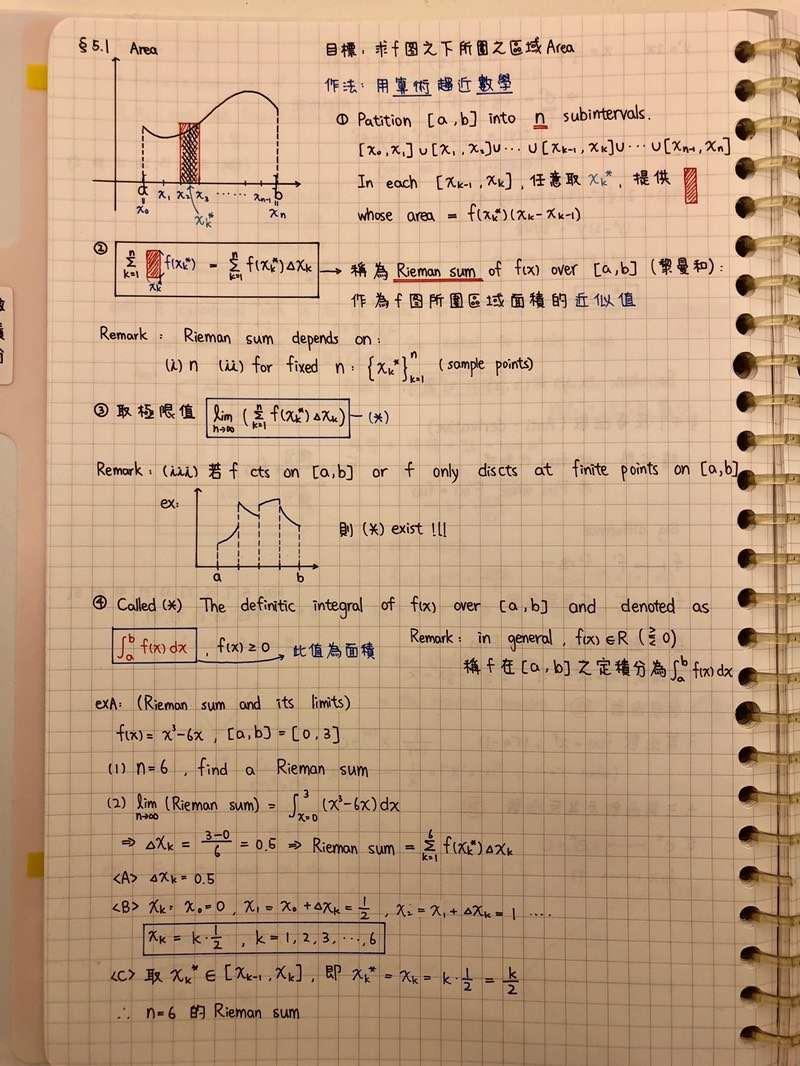 §5.1 Area
目標：求f图之下所圍之區域Area
作法：用算術趨近數學
① Patition [a,b] into n subintervals.
[x₀,x₁]∪[x₁,x₂]∪⋯∪[xₖ₋₁,xₖ]∪⋯∪[xₙ₋₁,xₙ]
In each [xₖ₋₁,xₖ],任意取 xₖ*，提供
whose area = f(xₖ*)(xₖ-xₖ₋₁)
a x₁ x₂ x₃ ⋯⋯ xₙ₋₁ b
x₀ xₖ* xₙ
② Σₖ₌₁ⁿ f(xₖ*) = Σₖ₌₁ⁿ f(xₖ*)Δxₖ → 稱為 Rieman sum of f(x) over [a,b] (黎曼和)：
xₖ*
作為f图所圍區域面積的近似值
Remark : Rieman sum depends on :
(i) n (ii) for fixed n : {xₖ*}ₖ₌₁ⁿ (sample points)
③ 取極限值 lim n→∞ (Σₖ₌₁ⁿ f(xₖ*)Δxₖ) — (*)
Remark : (iii) 若 f cts on [a,b] or f only discts at finite points on [a,b]
ex:
則 (*) exist !!!
a b
④ Called (*) The definitic integral of f(x) over [a,b] and denoted as
∫ₐᵇ f(x)dx , f(x)≥0 → 此值為面積
Remark : in general , f(x)∈R (⪌0)
稱f在[a,b]之定積分為∫ₐᵇ f(x)dx
exA: (Rieman sum and its limits)
f(x)= x³-6x , [a,b]=[0,3]
(1) n=6 , find a Rieman sum
(2) lim n→∞ (Rieman sum) = ∫ₓ₌₀³ (x³-6x)dx
⇒ Δxₖ = (3-0)/6 = 0.5 ⇒ Rieman sum = Σₖ₌₁⁶ f(xₖ*)Δxₖ
<A> Δxₖ=0.5
<B> xₖ: x₀=0 , x₁=x₀+Δxₖ=1/2 , x₂=x₁+Δxₖ=1 ⋯⋯
xₖ=k·1/2 , k=1,2,3,⋯,6
<C> 取 xₖ*∈[xₖ₋₁,xₖ] , 即 xₖ*=xₖ=k·1/2=k/2
∴ n=6 的 Rieman sum